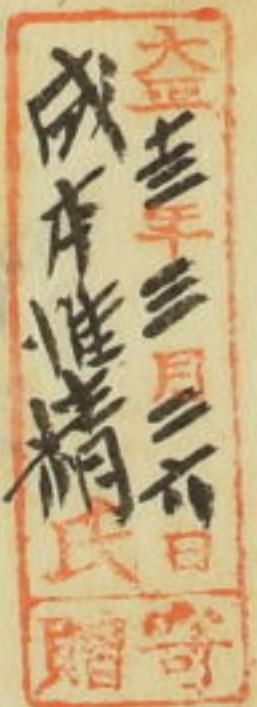 大正十三年三月二六日
成本惟精氏
寄贈